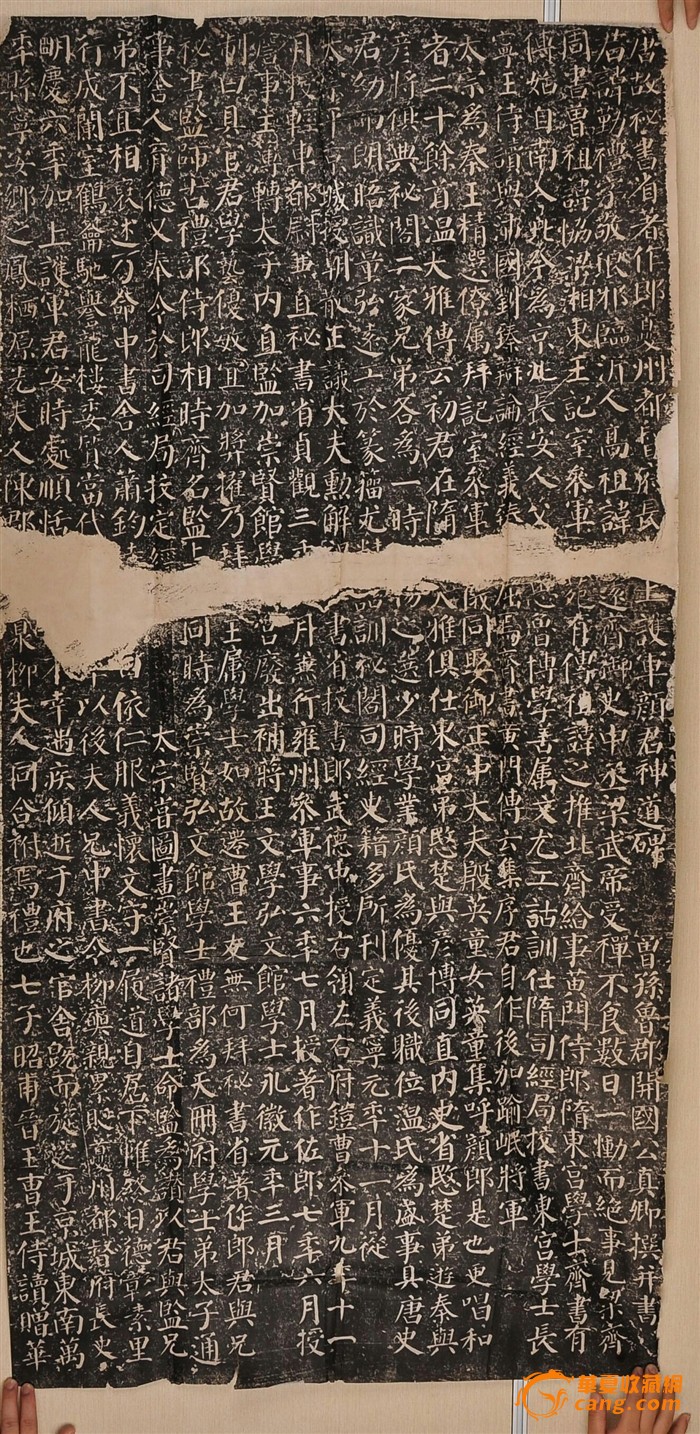 唐故祕書省著作郎夔州都督府長上護軍顏君神道碑 曾孫魯郡開國公真卿撰并書
君諱勤禮字敬琅邪臨沂人高祖諱遠齊御史中丞梁武帝受禪不食數日一慟而絕事見梁齊
周書曾祖諱協梁湘東王記室參軍苑有傳祖諱之推北齊給事黃門侍郎隋東宮學士齊書有
傳始自南入北今為京兆長安人父思魯博學善屬文尤工詁訓仕隋司經局校書東宮學士長
寧王侍讀與沛國劉臻辯論經義臻屈焉齊書黃門傳云集序君自作後加踰岷將軍
太宗為秦王精選僚屬拜記室參軍儀同娶御正中大夫殷英童女英童集呼顏郎是也更唱和
者二十餘首溫大雅傳云初君在隋大雅俱仕東宮弟愍楚與彥博同直內史省愍楚弟遊秦與
彥將俱典祕閣二家兄弟各為一時物之選少時學業顏氏為優其後職位溫氏為盛事具唐史
君幼而朗晤識量弘遠工於篆籀尤精詁訓祕閣司經史籍多所刊定義寧元年十一月從
太宗平京城授朝散正議大夫勳解書省校書郎武德中授右領左右府鎧曹參軍九年十一
月授輕車都尉兼直祕書省貞觀三年六月兼行雍州參軍事六年七月授著作佐郎七年六月授
詹事主簿轉太子內直監加崇賢館學宮廢出補蔣王文學弘文館學士永徽元年三月
制曰具官君學藝優敏宜加獎擢乃拜王屬學士如故遷曹王友無何拜祕書省著作郎君與兄
祕書監師古禮部侍郎相時齊名監與同時為崇賢弘文館學士禮部為天冊府學士弟太子通
事舍人育德又奉令於司經局校定經 太宗嘗圖畫崇賢諸學士命監為讚以君與監兄
弟不宜相褒述乃命中書舍人蕭鈞特曰依仁服義懷文守一履道自居下帷終日德彰素里
行成蘭室鶴籥馳譽龍樓委質當代年以後夫人兄中書令柳奭親累貶夔州都督府長史
明慶六年加上護軍君安時處順恬不幸遇疾傾逝于府之官舍既而旋窆于京城東南萬
年縣寧安鄉之鳳栖原先夫人陳郡泉柳夫人同合祔焉禮也七子昭甫晉王曹王侍讀贈華
華夏收藏網
cang.com